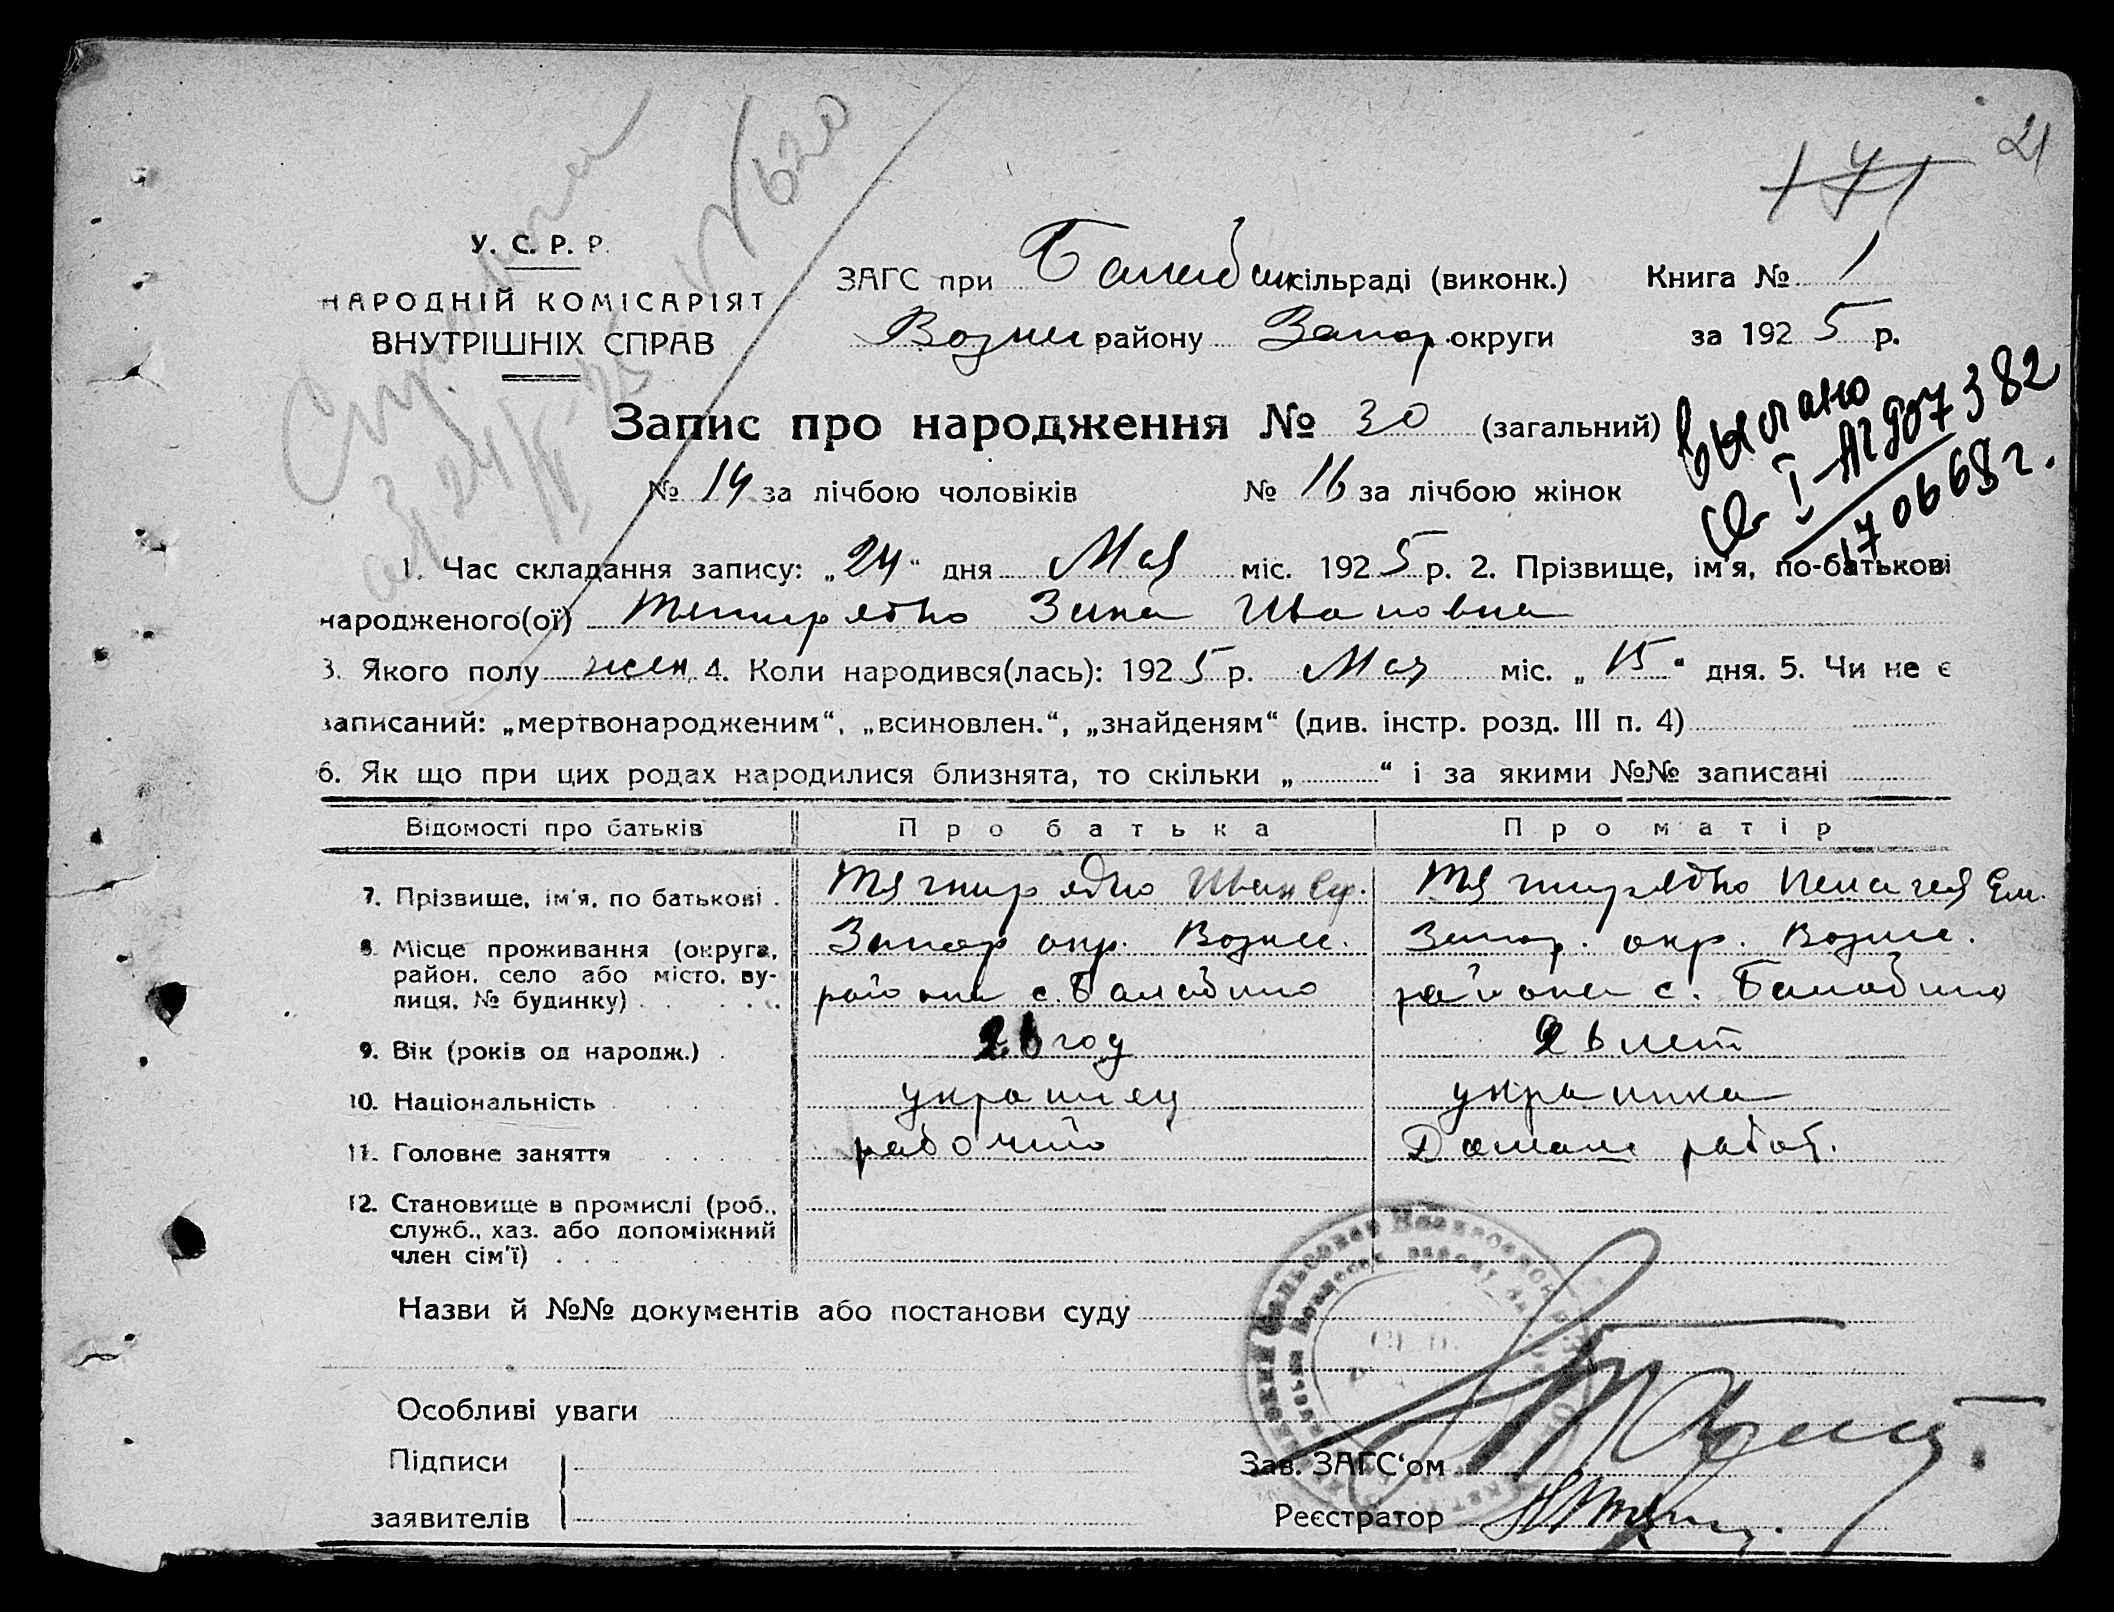 21
У. С. Р. Р.
НАРОДНІЙ КОМІСАРІЯТ
ВНУТРІШНІХ СПРАВ
№ 620
ЗАГС при Балабин сільраді (виконк.) Книга № 1
Вознес району Запор. округи за 1925 р.
Запис про народження № 30 (загальний)
Выслано
св. I-АГ № 07382
170668 г.
№ 14 за лічбою чоловіків № 16 за лічбою жінок
1. Час складання запису: „24“ дня Мая міс. 1925 р. 2. Прізвище, ім'я, по-батькові
народженого(ої) Тягнирядно Зина Ивановна
3. Якого полу жен. 4. Коли народився(лась): 1925 р. Мая міс. „15“ дня. 5. Чи не є
записаний: „мертвонародженим“, „всиновлен.“, „знайденям“ (див. інстр. розд. III п. 4)
6. Як що при цих родах народилися близнята, то скільки „ “ і за якими №№ записані
Відомості про батьків Про батька Про матір
7. Прізвище, ім'я, по батькові Тягнирядно Иван Тягнирядно Пелагея Ем.
8. Місце проживання (округа, район, село або місто, вулиця, № будинку) Запор окр. Вознес. района с. Балабино Запор. окр. Вознес. района с. Балабино
9. Вік (років од народж.) 26 год 26 лет
10. Національність украинец украинка
11. Головне заняття рабочий Домашн работ.
12. Становище в промислі (роб.,
служб., хаз. або допоміжний
член сім'ї)
Назви й №№ документів або постанови суду
Особливі уваги
Підписи
заявителів
Зав. ЗАГС'ом
Реєстратор